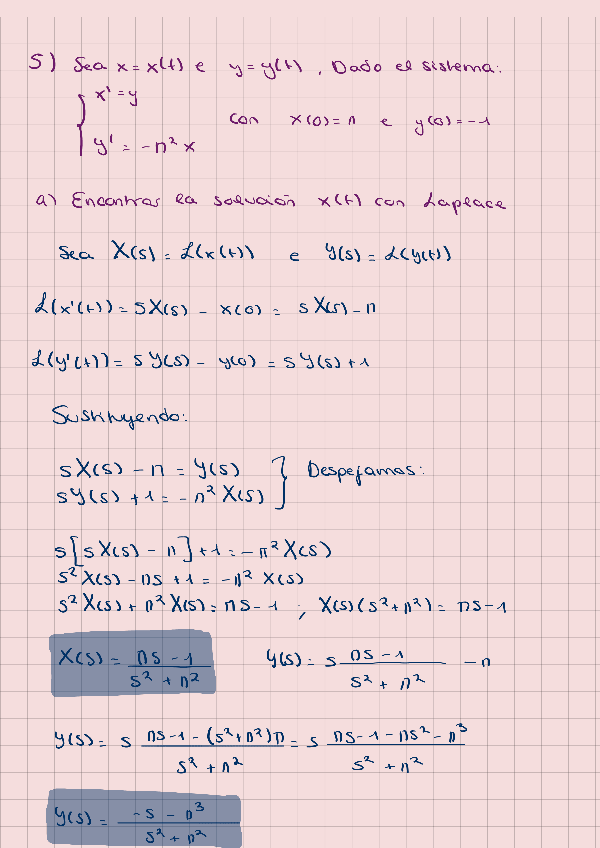 5) Sea x = x(t) e y = y(t). Dado el sistema:
{ x' = y
y' = -n² x con x(0) = n e y(0) = -1
a) Encontrar la solución x(t) con Laplace
Sea X(s) = L(x(t)) e Y(s) = L(y(t))
L(x'(t)) = sX(s) - x(0) = sX(s) - n
L(y'(t)) = sY(s) - y(0) = sY(s) + 1
Sustituyendo:
sX(s) - n = Y(s) } Despejamos:
sY(s) + 1 = -n² X(s)
s[sX(s) - n] + 1 = -n² X(s)
s² X(s) - ns + 1 = -n² X(s)
s² X(s) + n² X(s) = ns - 1 ; X(s)(s² + n²) = ns - 1
X(s) = (ns - 1)/(s² + n²) Y(s) = s (ns - 1)/(s² + n²) - n
Y(s) = s (ns - 1 - (s² + n²)n)/(s² + n²) = s (ns - 1 - ns² - n³)/(s² + n²)
Y(s) = (-s - n³)/(s² + n²)